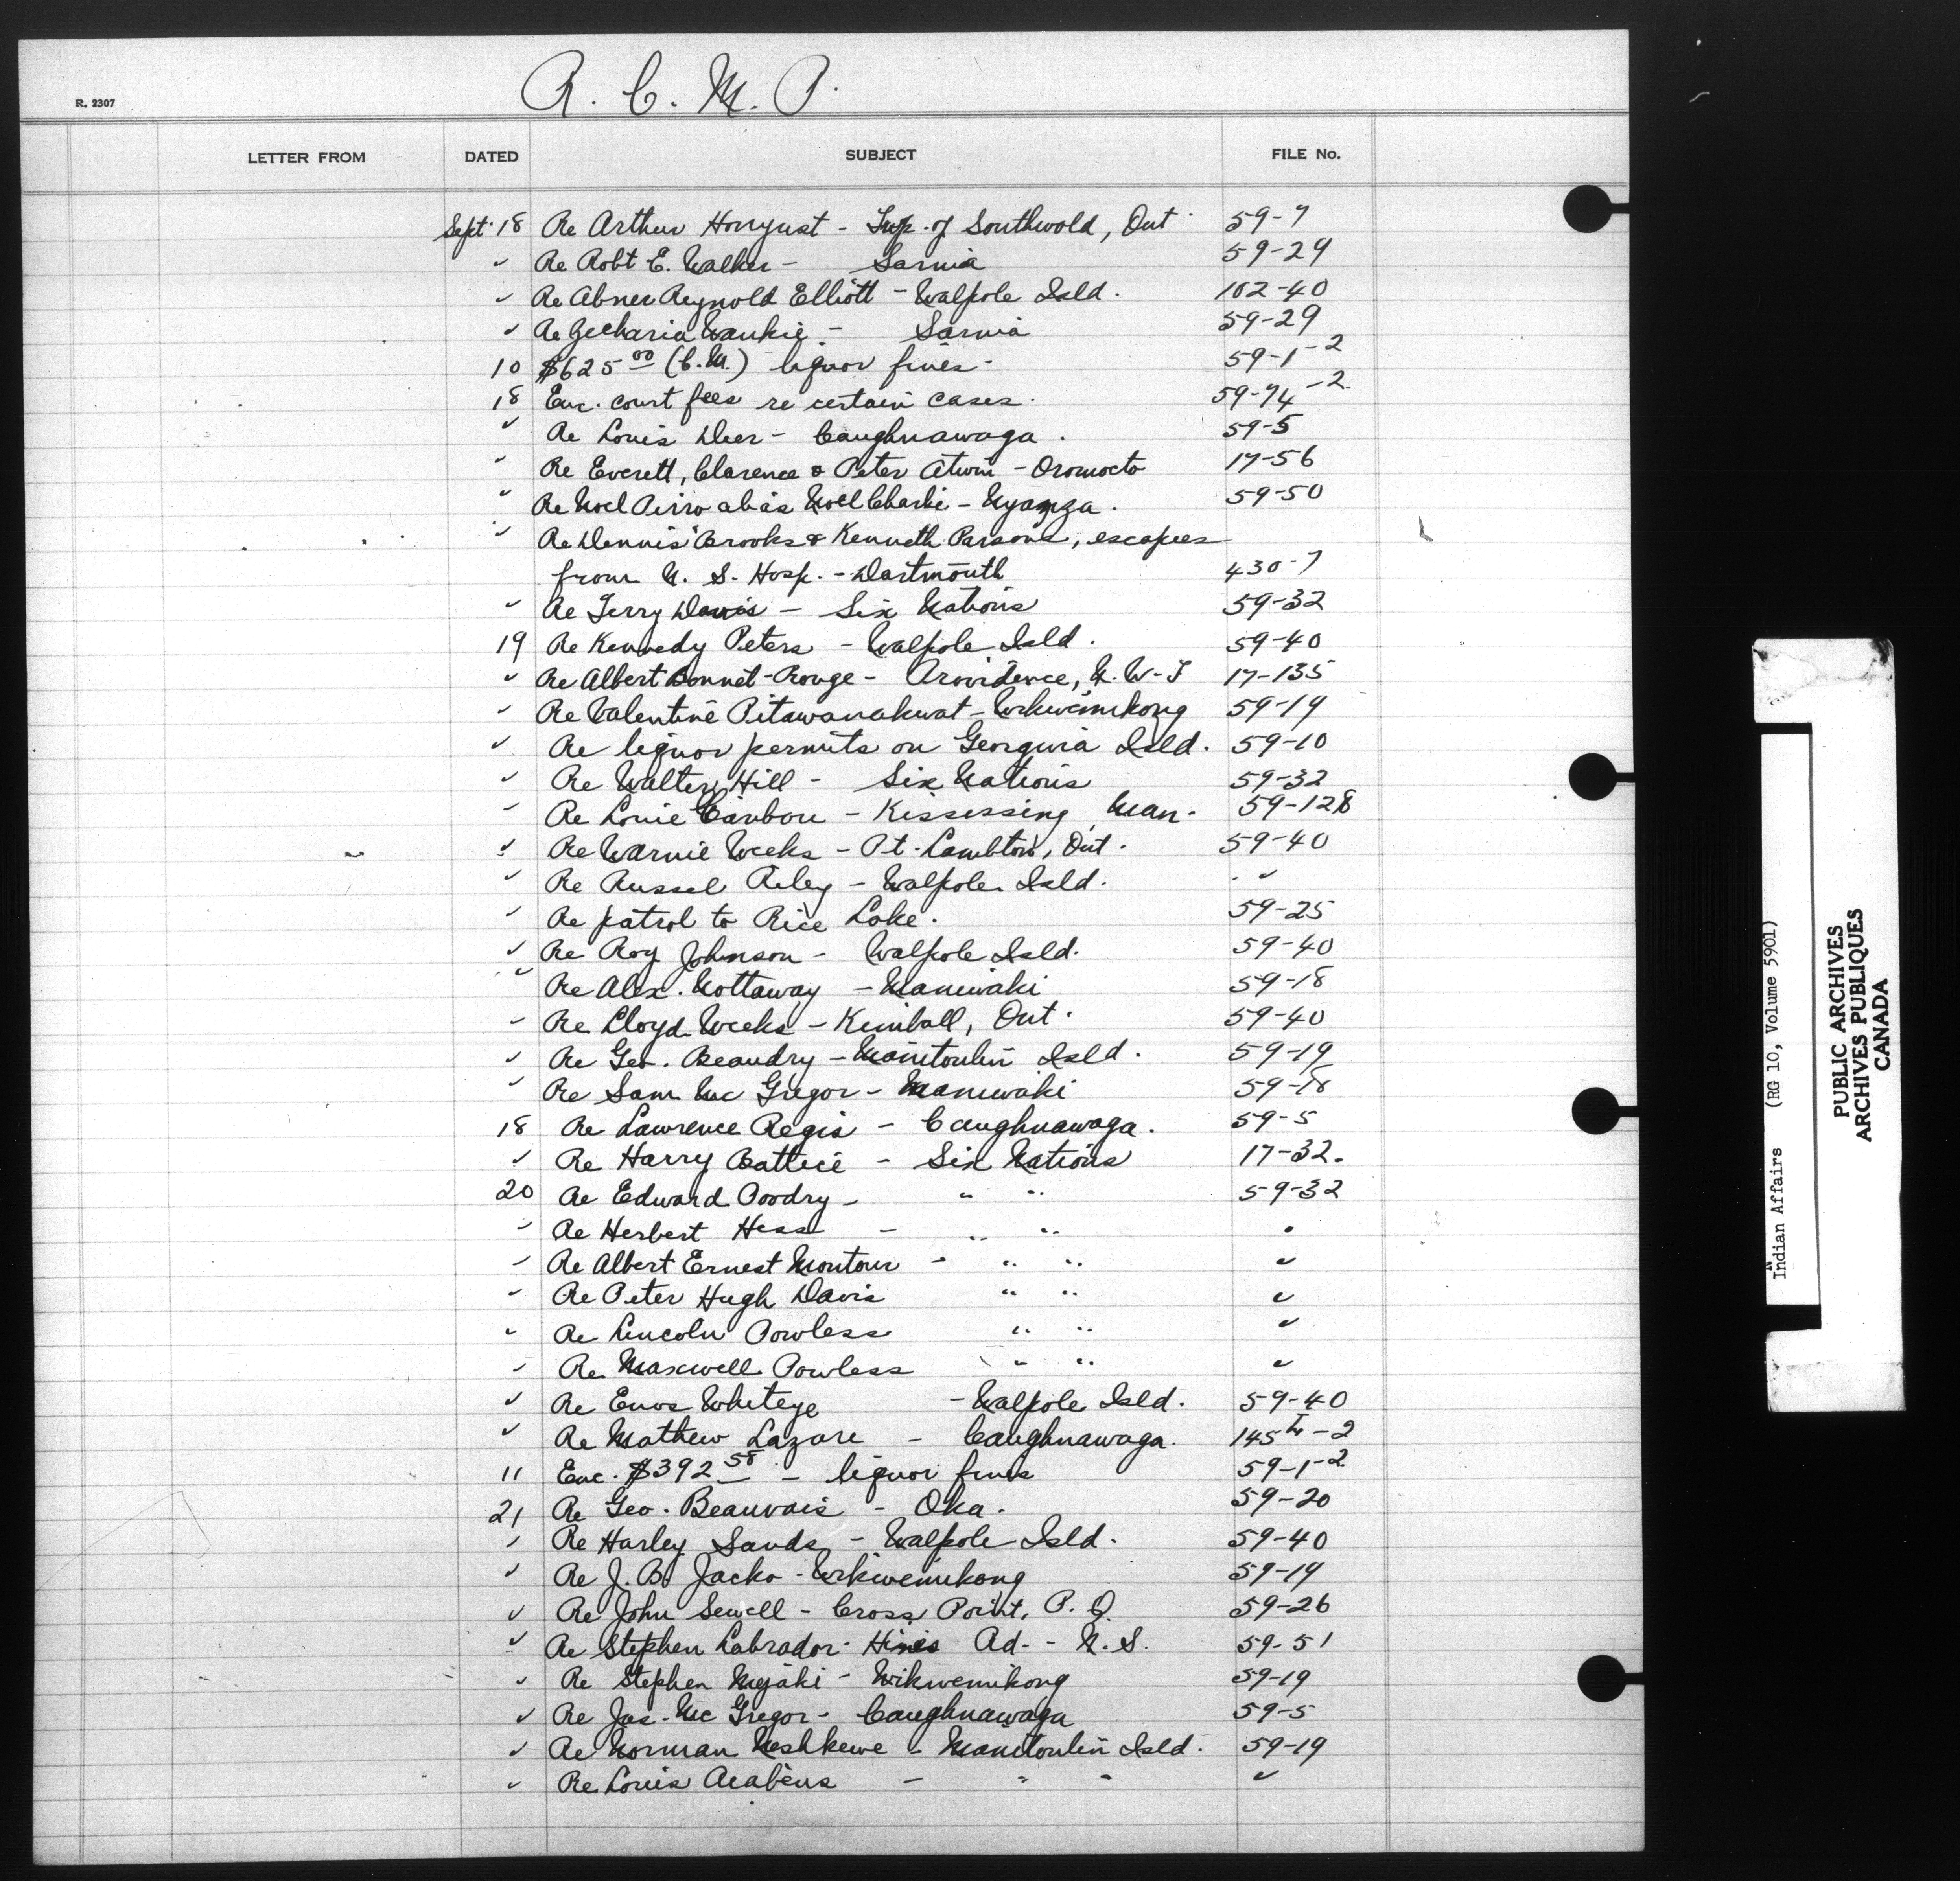 R. C. M. P.
R. 2307
LETTER FROM DATED SUBJECT FILE No.
Sept. 18 Re Arthur Honyust - Twp. of Southwold, Ont. 59-7
" Re Robt E. Walker - Sarnia 59-29
" Re Abner Reynold Elliott - Walpole Isld. 102-40
" Re Zecharia - Sarnia 59-29
10 $625 00 (C.M.) liquor fines - 59-1-2
18 Enc. court fees re certain cases. 59-74-2
" Re Louis Deer - Caughnawaga. 59-5
" Re Everett, Clarence & Peter Atwin - Oromocto 17-56
" Re Noel Pirro alias Noel Charlie - Nyanza. 59-50
" Re Dennis Brooks & Kenneth Parsons, escapees
from N. S. Hosp. - Dartmouth 430-7
" Re Terry Davis - Six Nations 59-32
19 Re Kennedy Peters - Walpole Isld. 59-40
" Re Albert Bonnet-Rouge - Providence, N.W.T 17-135
" Re Valentine Pitawanakwat - Wikwemikong 59-19
" Re liquor permits on Georgina Isld. 59-10
" Re Walter Hill - Six Nations 59-32
" Re Louie Caribou - Kississing, Man. 59-128
" Re Warnie Weeks - Pt. Lambton, Ont. 59-40
" Re Russel Riley - Walpole Isld. "
" Re patrol to Rice Lake. 59-25
" Re Roy Johnson - Walpole Isld. 59-40
" Re Alex. Nottaway - Maniwaki 59-18
" Re Lloyd Weeks - Kimball, Ont. 59-40
" Re Geo. Beaudry - Manitoulin Isld. 59-19
" Re Sam Mc Gregor - Maniwaki 59-18
18 Re Lawrence Regis - Caughnawaga. 59-5
" Re Harry Battice - Six Nations 17-32.
20 Re Edward Poodry - " " 59-32
" Re Herbert Hess - " " "
" Re Albert Ernest Montour - " " "
" Re Peter Hugh Davis " " "
" Re Lincoln Powless " " "
" Re Maxwell Powless " " "
" Re Enos Whiteye - Walpole Isld. 59-40
" Re Mathew Lazare - Caughnawaga. 145 -2
11 Enc. $392 58 - liquor fines 59-1-2
21 Re Geo. Beauvais - Oka. 59-20
" Re Harley Sands - Walpole Isld. 59-40
" Re J. B. Jacko - Wikwemikong 59-19
" Re John Sewell - Cross Point, P. Q. 59-26
" Re Stephen Labrador - Hines Rd. - N. S. 59-51
" Re Stephen - Wikwemikong 59-19
" Re Jas. Mc Gregor - Caughnawaga 59-5
" Re Norman Neshkewe - Manitoulin Isld. 59-19
" Re Louis - " " "
Indian Affairs (RG 10, Volume 5901)
PUBLIC ARCHIVES
ARCHIVES PUBLIQUES
CANADA